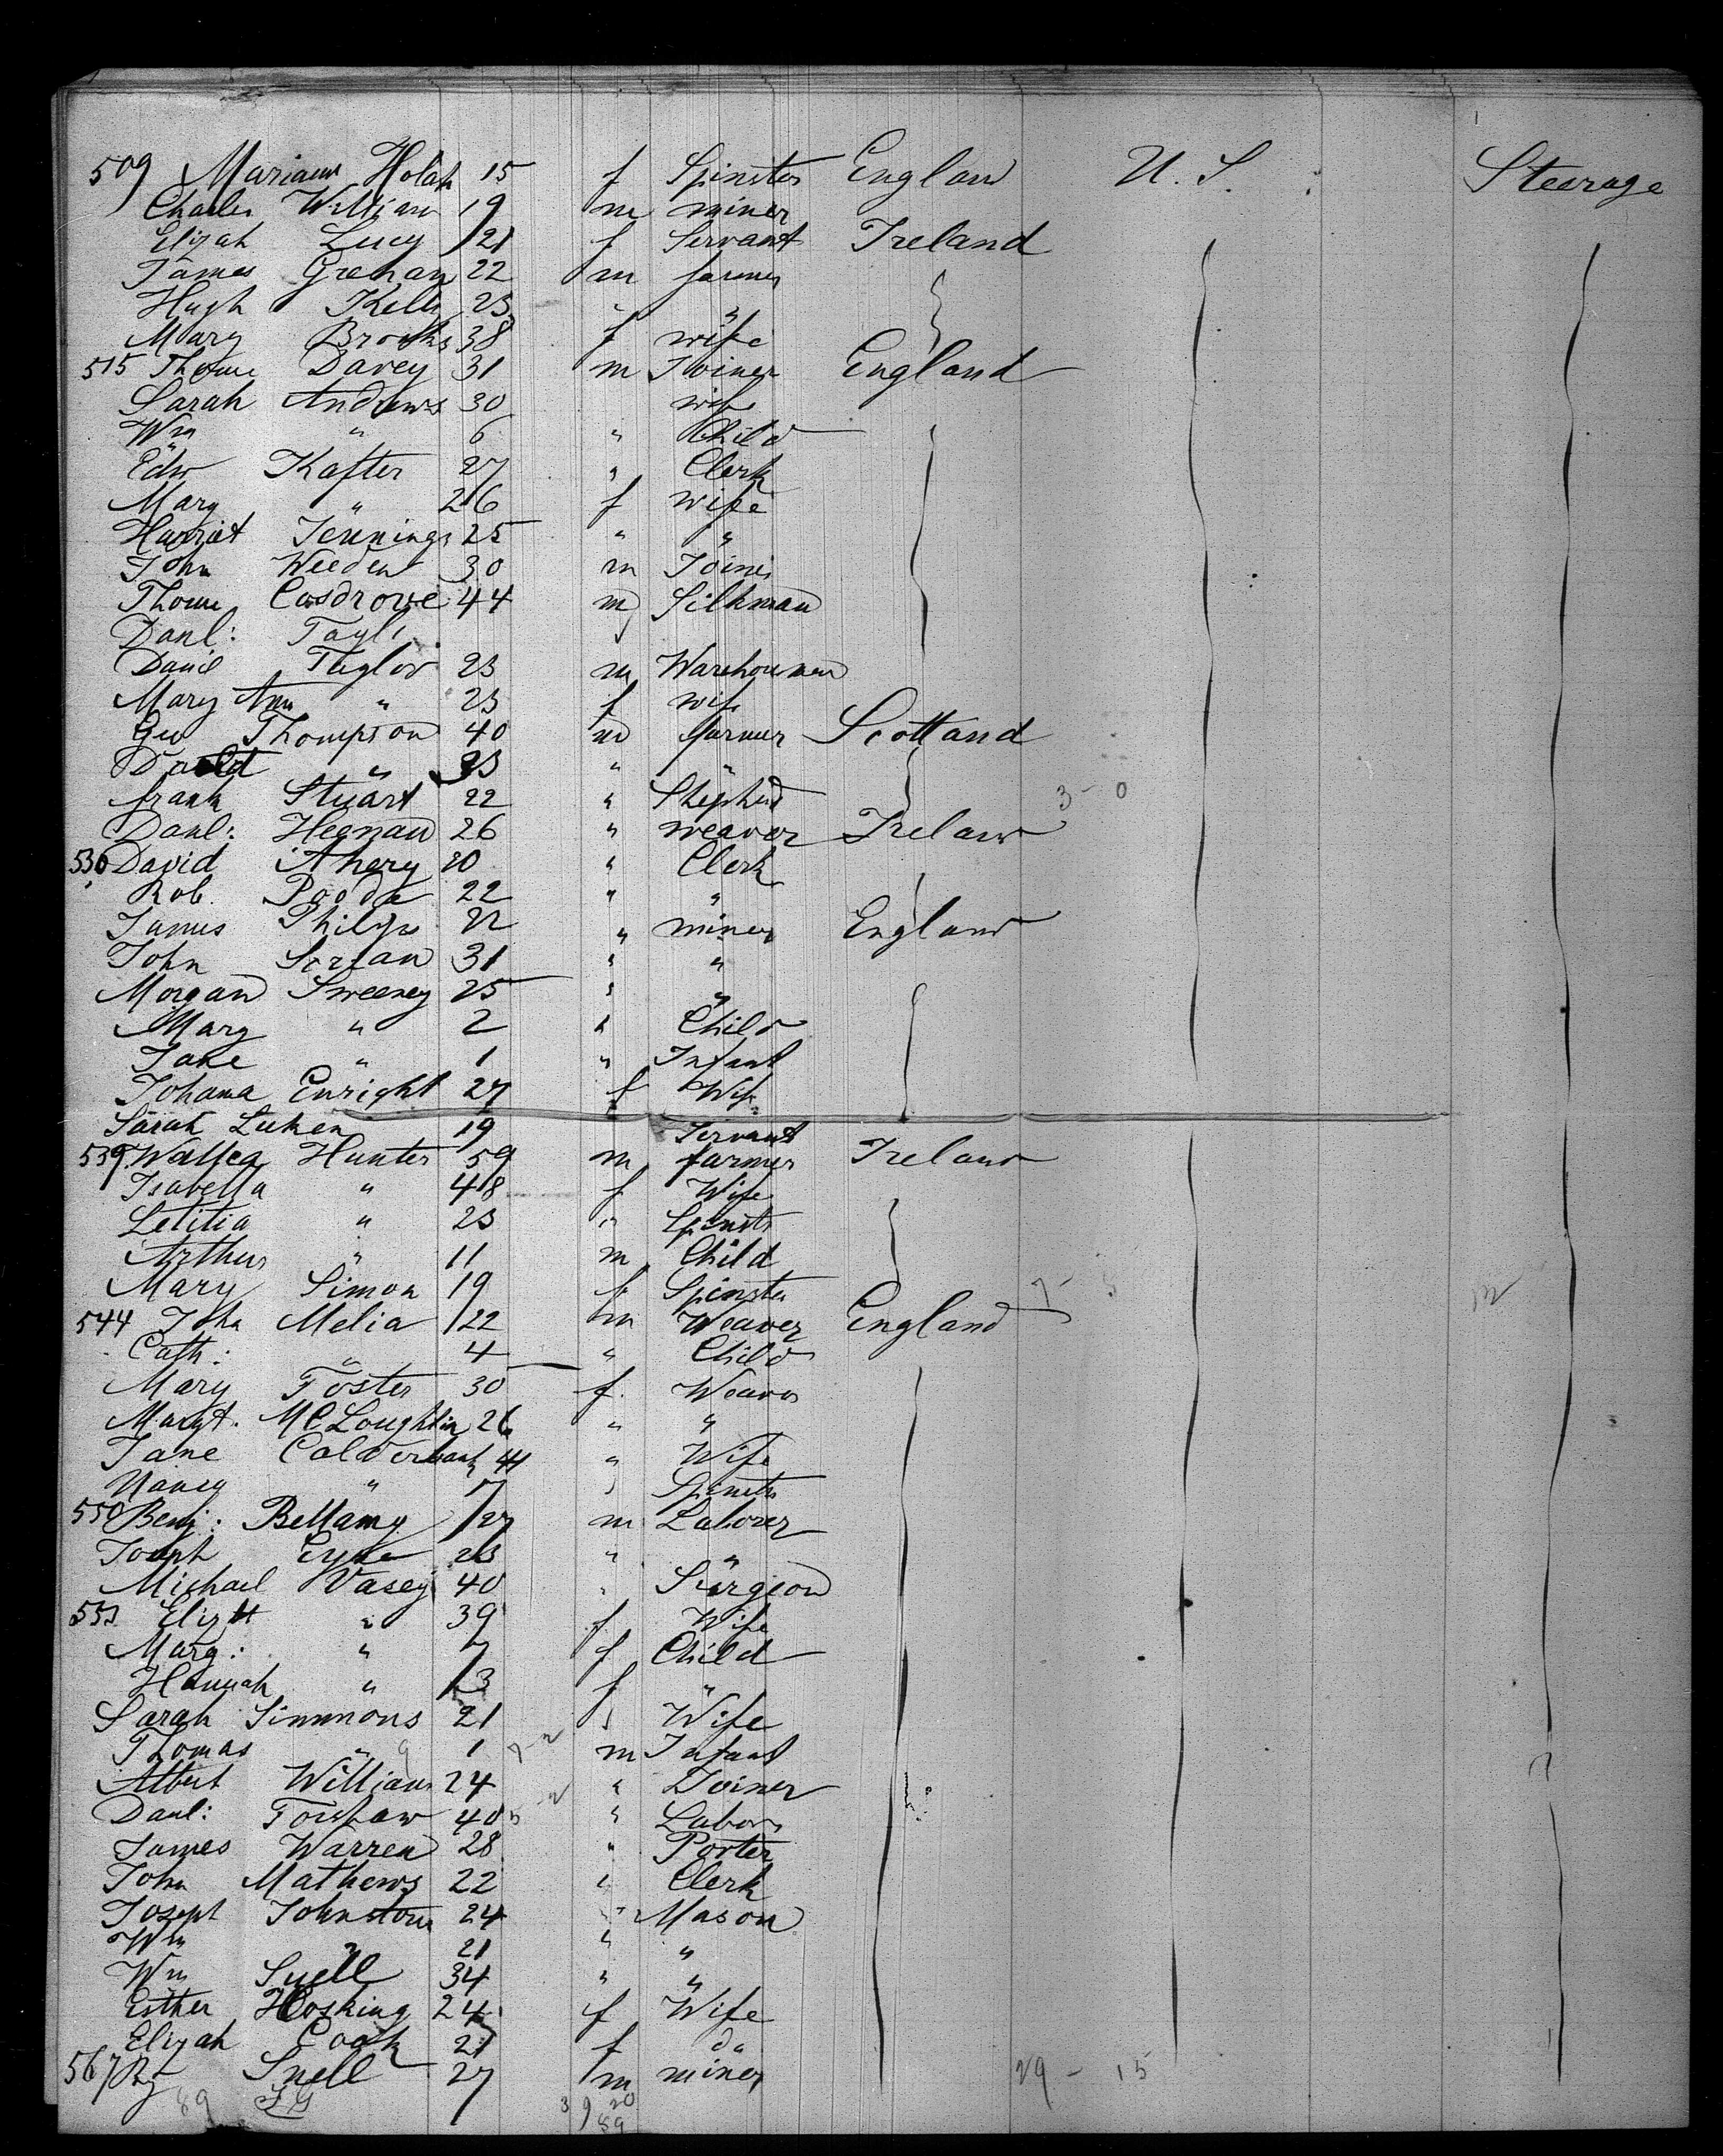 509 Mariann Holah 15 f Spinster England U. S. Steerage
Charles William 19 m miner
Elizah Lucy 21 f Servant Ireland
James Grenan 22 m farmer
Hugh Kelly 23 " "
Mary Brooks 38 f wife
515 Thomas Davey 31 m Joiner England
Sarah Andrews 30 wife
Wm " 6 " Child
Edw Kafter 27 " Clerk
Mary " 26 f wife
Harriet Jennings 25 " "
John Weeden 30 m Joiner
Thomas Cosdrove 44 m Silkman
Danl: Tayl
Daniel Taylor 23 m Warehouseman
Mary Ann " 23 f wife
Geo Thompson 40 m farmer Scotland
David " 33 " "
frank Stuart 22 " Shepherd 3 - 0
Danl: Heenan 26 " weaver Ireland
530 David Ahery 20 " Clerk
Rob. Poode 22 " "
James Philips 22 " miner England
John 31 " "
Morgan Sweeney 25 " "
Mary " 2 " Child
Jane " 1 " Infant
Johana Enright 27 f Wife
Sarah Luken 19 Servant
539 Hunter 59 m farmer Ireland
Isabella " 48 f Wife
Letitia " 23 " Spinster
Arthur " 11 m Child
Mary Simon 19 f Spinster 7 - 3
544 John Melia 22 m Weaver England
Cath: " 4 " Child
Mary Foster 30 f. Weaver
Margt. McLoughlin 26 " "
Jane Calderbank 44 " Wife
Nancy " 7 " Spinster
550 Benj: Bellamy 27 m Laborer
Joseph 23 " "
Michael Vasey 40 " Surgeon
553 Elizth " 39 f Wife
Marg: " 7 f Child
Hannah " 3 f "
Sarah Simmons 21 " Wife
Thomas " 1 m Infant
Albert William 24 " Joiner
Danl: Forshaw 40 " Labor
James Warren 28 " Porter
John Mathews 22 " Clerk
Joseph Johnston 24 " Mason
Wm " 21 " "
Wm Snell 34 " "
Esther Hosking 24 f Wife
Elizah Cook 27 f do
567 Snell 27 m miner 29 - 15
89 89